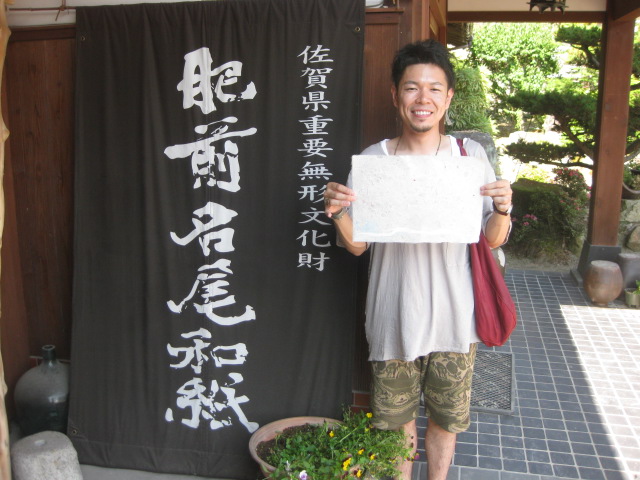 佐賀県重要無形文化財
肥前名尾和紙